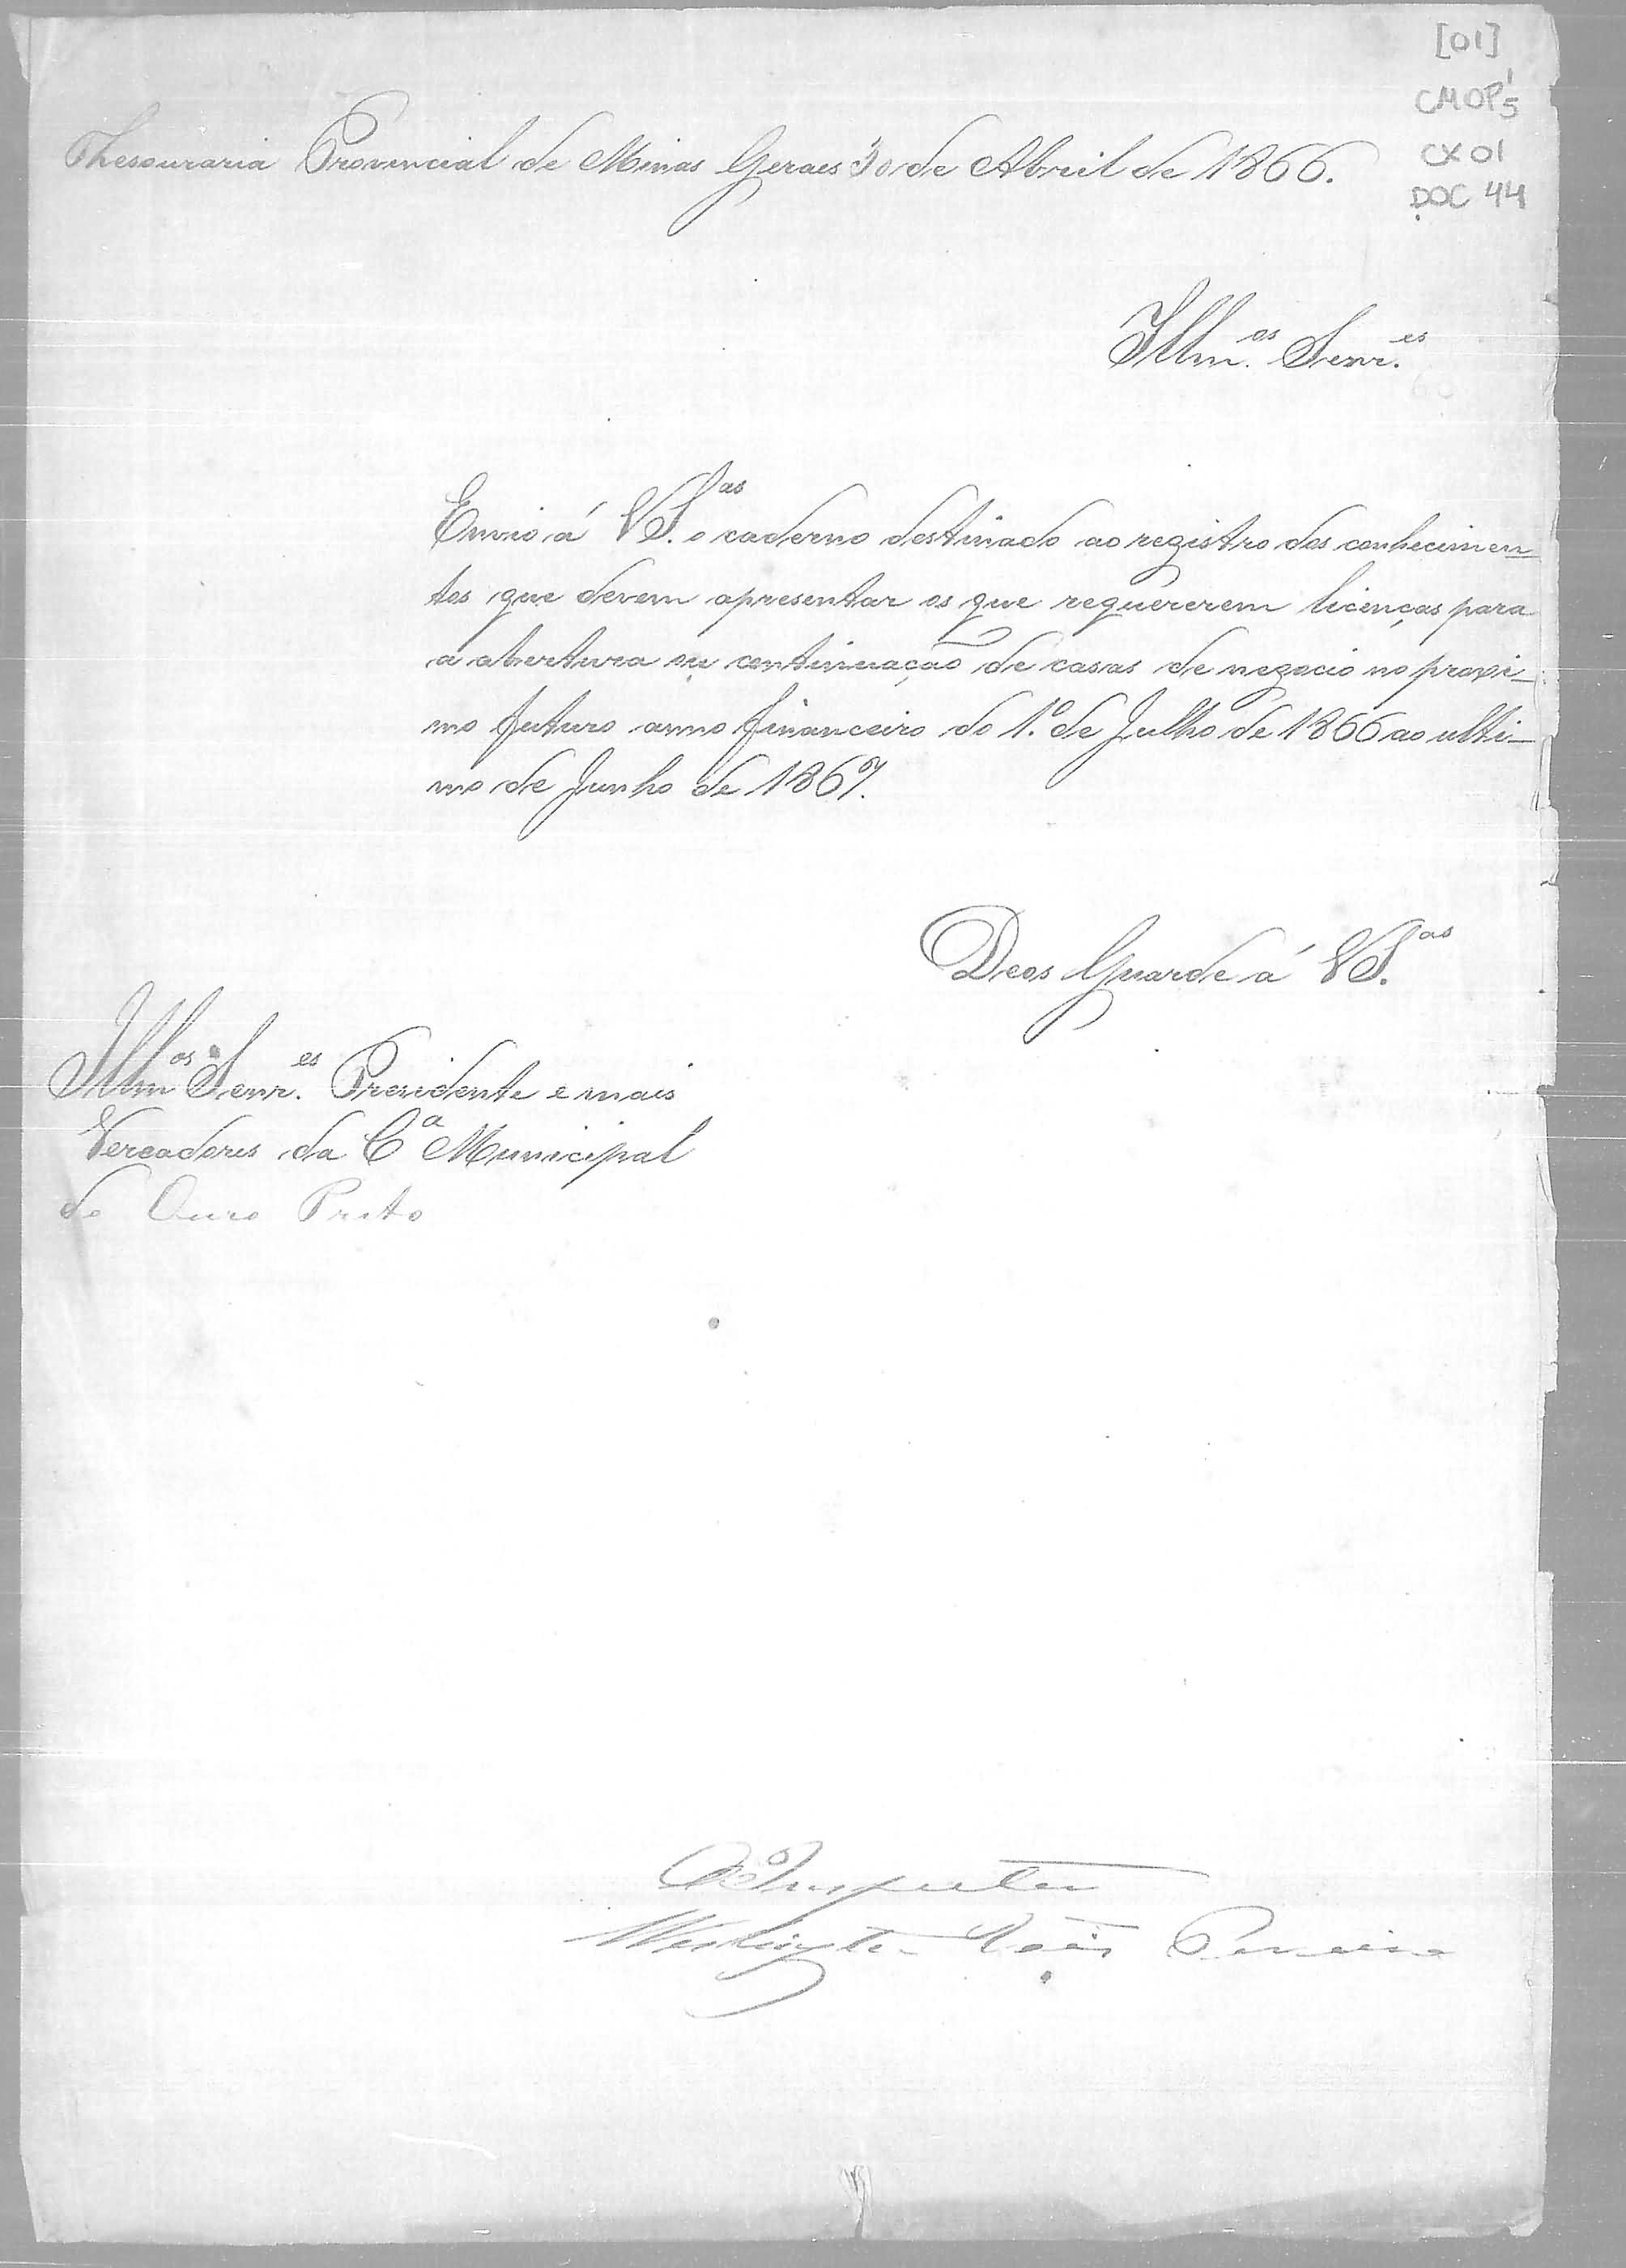 [01]
CMOP 5
CX 01
DOC 44
Thesouraria Provincial de Minas Geraes 30 de Abril de 1866.
Illm.os Senr.es
Envio á VS.as o caderno destinado ao registro dos conhecimen-
tos que devem apresentar os que requererem licenças para
a abertura ou continuação de casas de negocio no proxi-
mo futuro anno financeiro do 1.o de Julho de 1866 ao ulti-
mo de Junho de 1867.
Deos Guarde á VS.as
Illmos Senr.es Presidente e mais
Vereadores da Ca Municipal
do Ouro Preto
O Inspector
Pereira